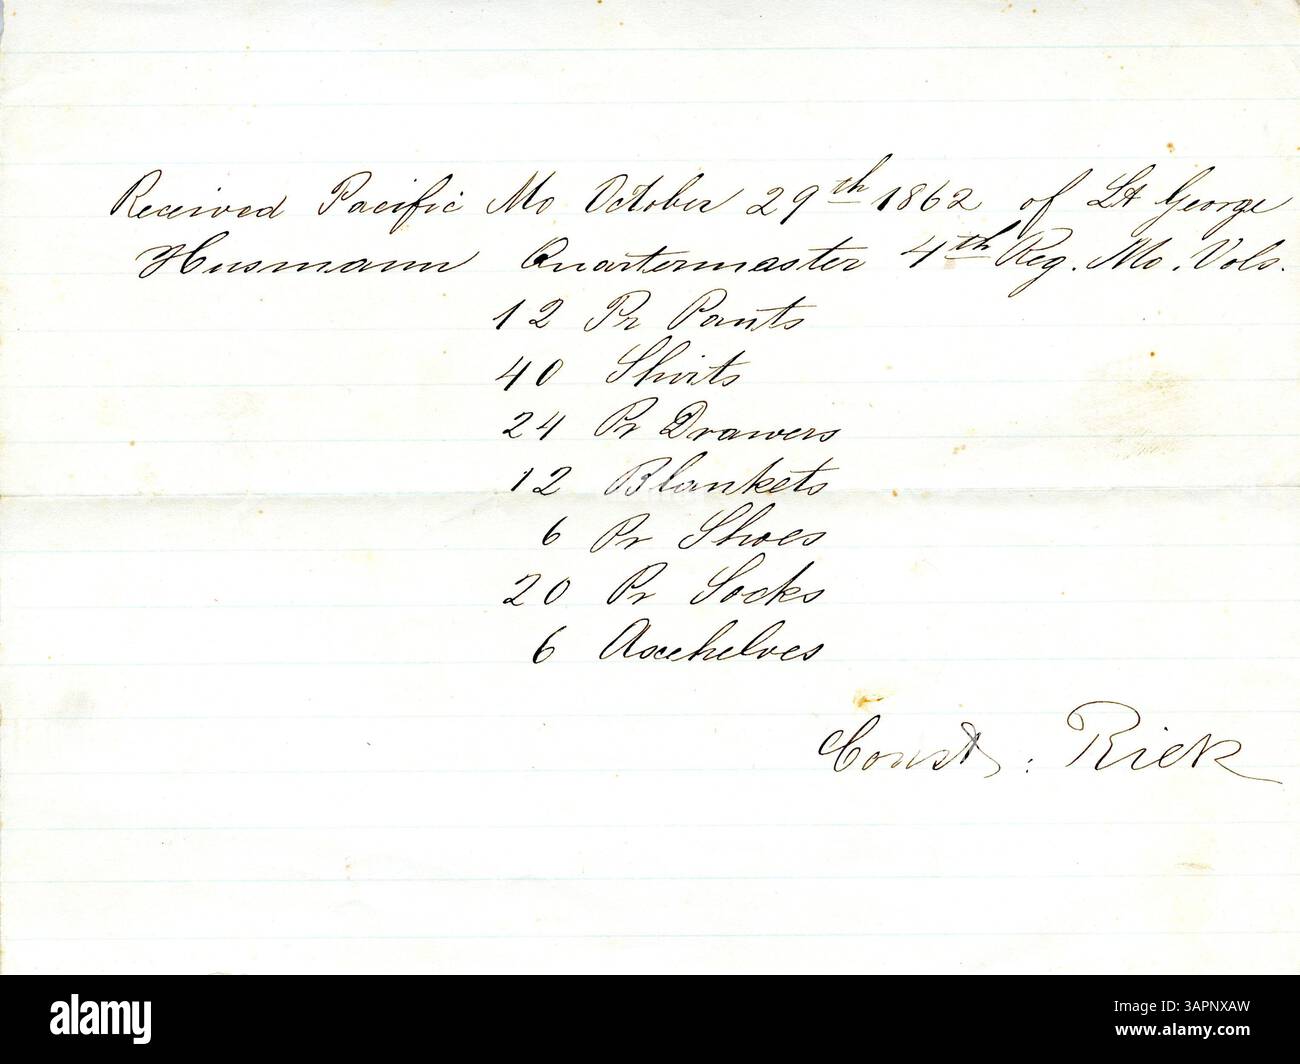 Received Pacific Mo October 29th 1862 of Lt George
Husmann Quartermaster 4th Reg. Mo. Vols.
12 Pr Pants
40 Shirts
24 Pr Drawers
12 Blankets
6 Pr Shoes
20 Pr Socks
6 Axehelves
Const : Riek
alamy
Image ID: 3APNXAW
www.alamy.com